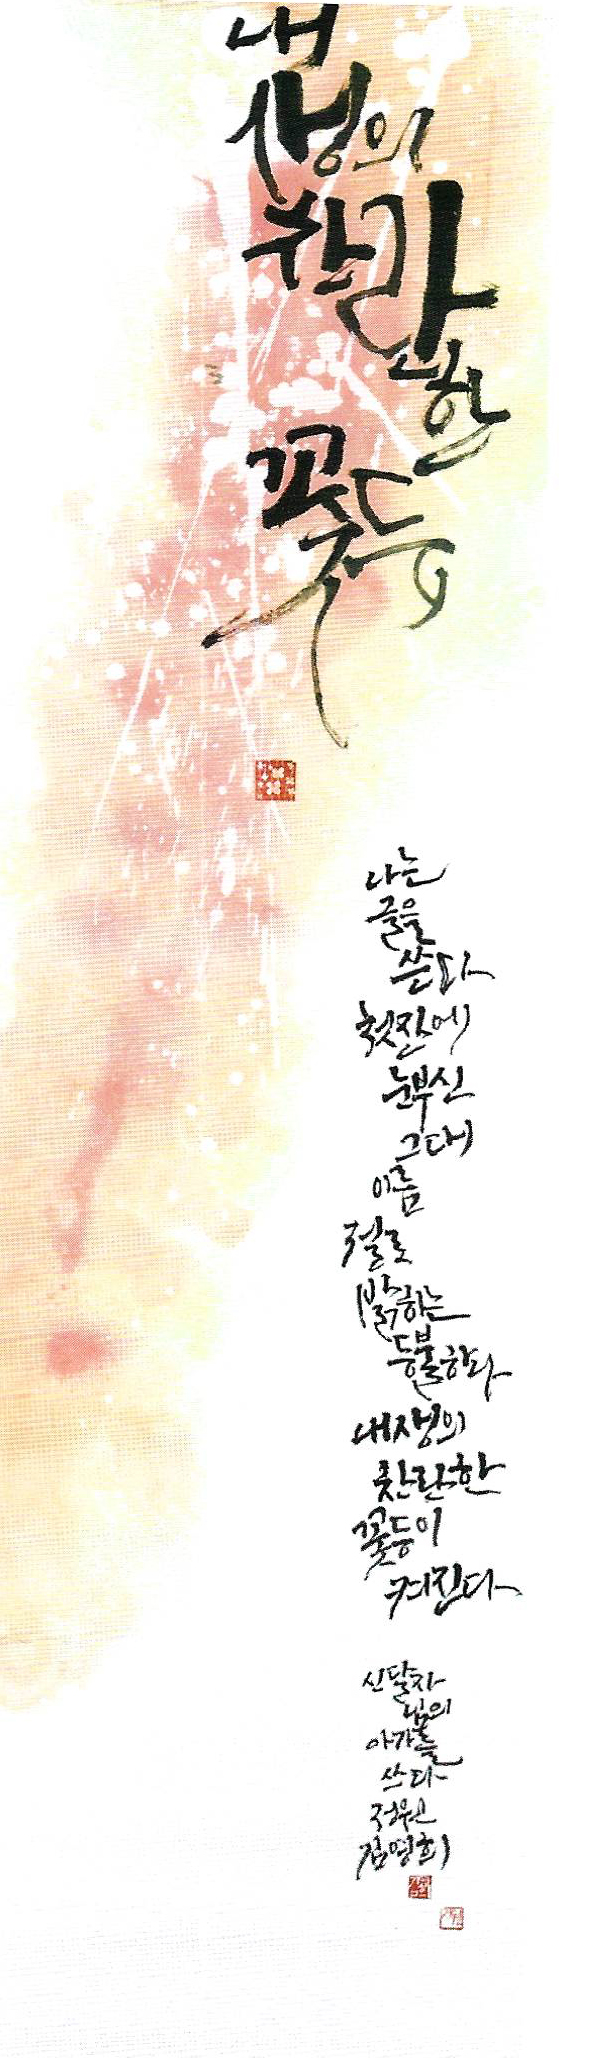 내
생의
찬란한
꽃등
나는
글을
쓴다
첫잔에
눈부신
그대
이름
절로
밝하는
등불하다
내생의
찬란한
꽃등이
켜진다
신달자
님의
아가를
쓰다
정원
김영희